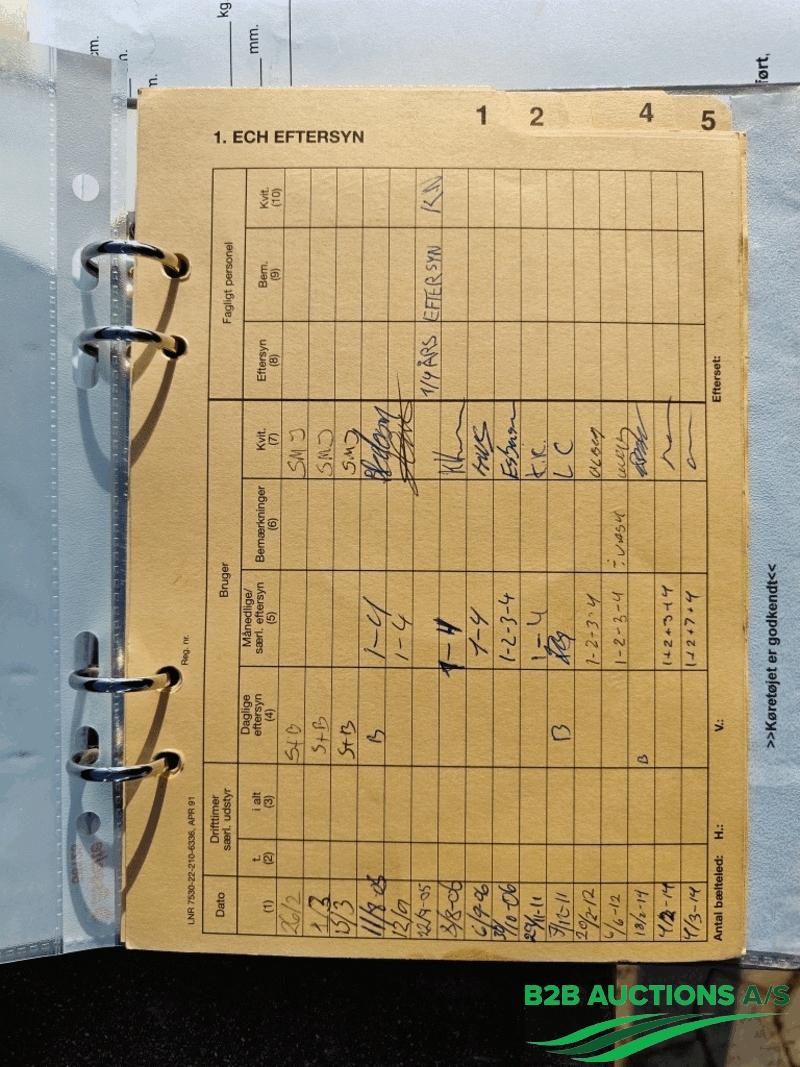 kg.
cm.
m.
mm.
m.
ført,
1
2
4
5
1. ECH EFTERSYN
LNR 7530-22-210-6336, APR 91
Reg. nr.
Dato
Drifttimer særl. udstyr
Bruger
Fagligt personel
(1)
t. (2)
i alt (3)
Daglige eftersyn (4)
Månedlige/ særl. eftersyn (5)
Bemærkninger (6)
Kvit. (7)
Eftersyn (8)
Bem. (9)
Kvit. (10)
26/2 S+B SMJ
1/3 S+B SMJ
15/3 S+B SMJ
11/8-05 B 1-4
1-4
22/9-05 1/4 ÅRS EFTERSYN
3/8-06 1-4
6/9-06 1-4
1/10-06 1-2-3-4
29/11-11 1-4 K.K.
5/12-11 B LC
20/2-12 1-2-3-4
6/6-12 1-2-3-4
B
1+2+3+4
4/3-14 1+2+3+4
Antal bælteled: H.: V.: Efterset:
>>Køretøjet er godkendt<<
B2B AUCTIONS A/S